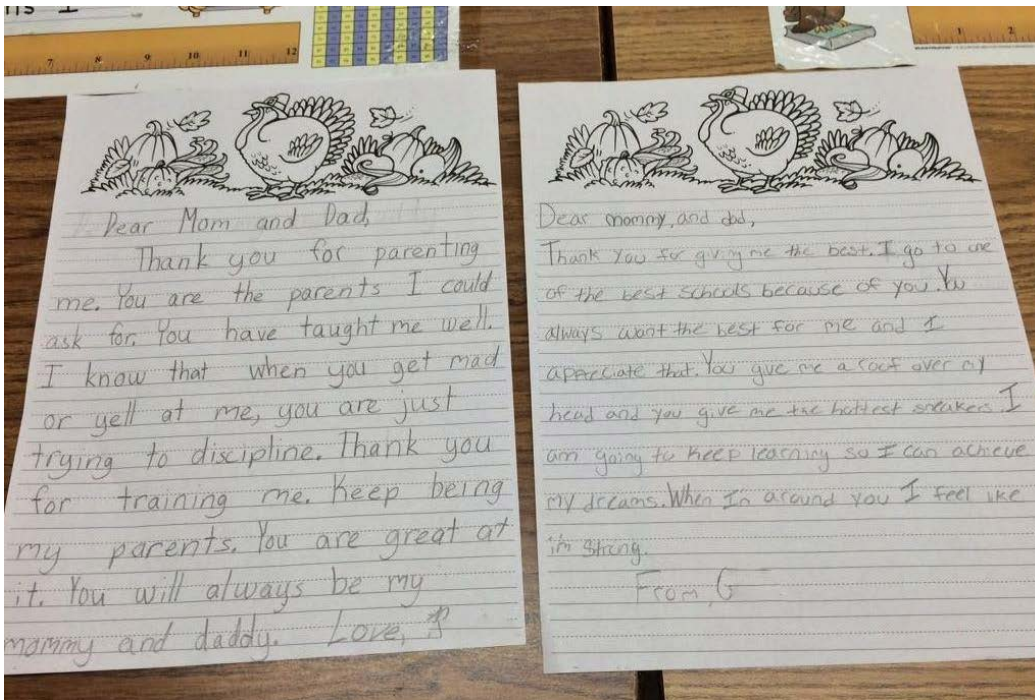 7 8 9 10 11 12
1 2
Dear Mom and Dad,
Thank you for parenting
me. You are the parents I could
ask for. You have taught me well.
I know that when you get mad
or yell at me, you are just
trying to discipline. Thank you
for training me. Keep being
my parents. You are great at
it. You will always be my
mommy and daddy. Love, J
Dear mommy, and dad,
Thank You for giving me the best. I go to one
of the best schools because of you. You
always want the best for me and I
appreciate that. You give me a roof over my
head and you give me the hottest sneakers. I
am going to keep learning so I can achieve
my dreams. When Im around you I feel like
i'm strong.
From, G